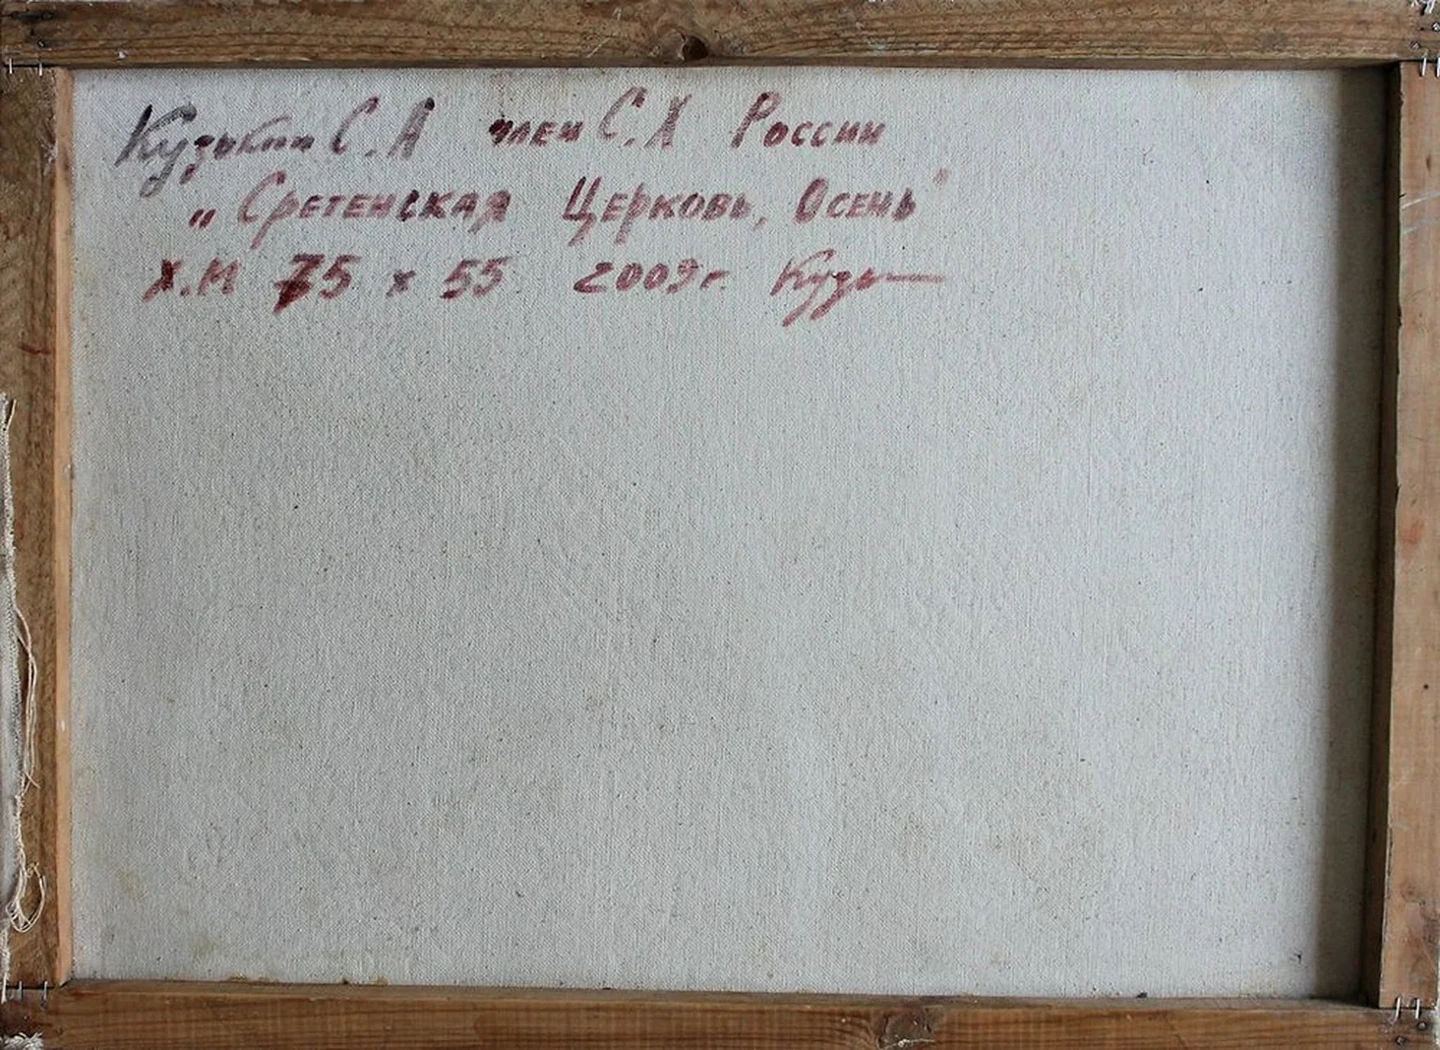 Кузькин С.А член С.Х России
„Сретенская Церковь, Осень"
Х.М 75 x 55 2009г. Кузь